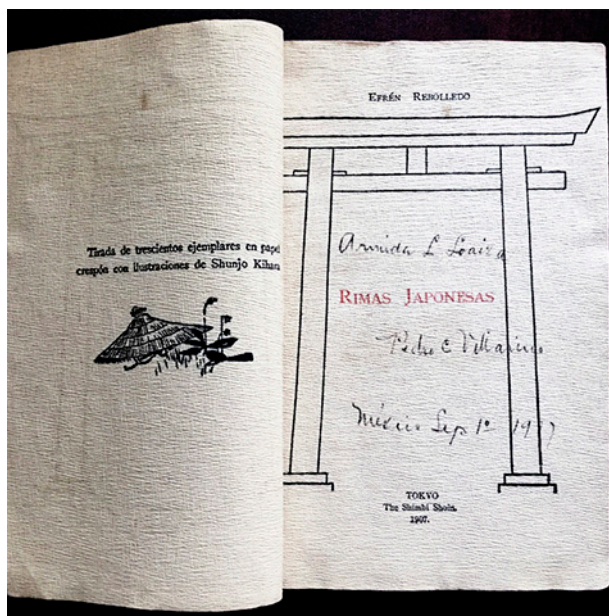 Tirada de trescientos ejemplares en papel
crespón con ilustraciones de Shunjo Kihara
EFRÉN REBOLLEDO
Armida L Loaiza
RIMAS JAPONESAS
Pedro C
México Sep 1º
TOKYO
The Shimbi Shoin.
1907.